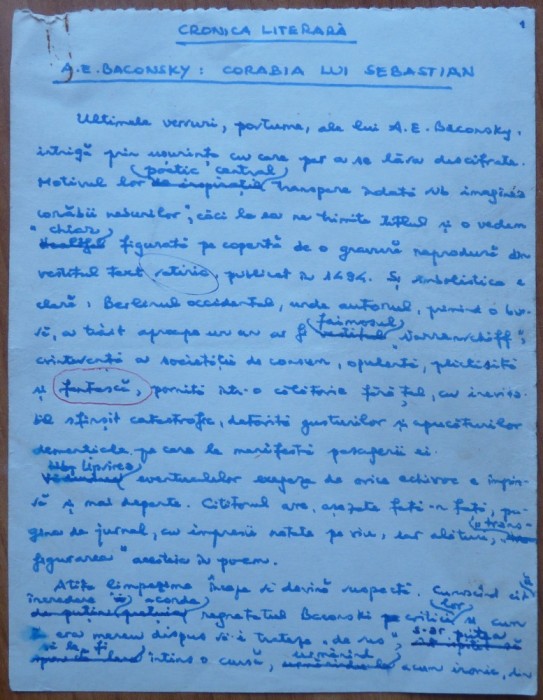 1
CRONICA LITERARĂ
A.E. BACONSKY: CORABIA LUI SEBASTIAN
Ultimele versuri, postume, ale lui A.E. Baconsky,
intrigă prin ușurința cu care par a se lăsa descifrate.
poetic central
Motivul lor de inspirație transpare îndată sub imaginea
"corăbii nebunilor", căci la ea ne trimite titlul și o vedem
chiar
figurată pe copertă de o gravură reprodusă din
vestitul text satiric, publicat în 1494. Și simbolistica e
clară: Berlinul occidental, unde autorul, primind o bur-
să, a trăit aproape un an ar fi
faimosul
vestitul "Narrenschiff",
a societății de consum, opulentă, plictisită
și fantască, pornită într-o călătorie fără țel, cu inevita-
bil sfîrșit catastrofic, datorită gusturilor și apucăturilor
demențiale pe care le manifestă pasagerii ei.
Lipsirea
eventualelor exegeze de orice echivoc e împin-
să și mai departe. Cititorul are, așezate față-n față, pa-
gina de jurnal, cu impresii notate pe viu, iar alături,
"trans-
figurarea" acesteia în poem.
Atîta limpezime începe să devină suspectă. Cunoscînd cîtă
încredere acorda
regretatul Baconski pe critici
lor
și cum
era mereu dispus să-i trateze "de sus",
s-ar putea
să le fi
întins o cursă,
urmărind
acum ironic, din